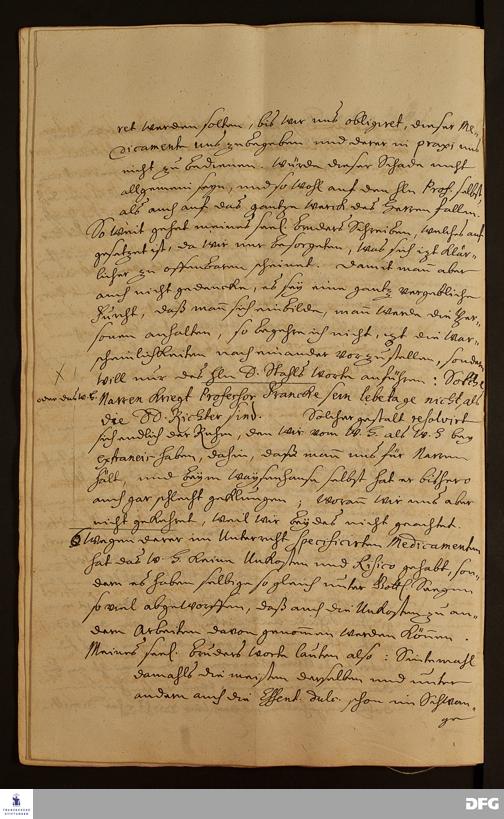 ret werden solten, bis wir uns obligiret, dieser Me-
dicamente uns zubegeben und derer in praxi uns
nicht zu bedienen. Würde dieser Schade nicht
allgemein seyn, und so wohl auf den Hln Prof. selbst,
als auch auf das gantze Werck des Herren fallen.
So weit gehet meines seel. Bruders Schreiben, welches auf
gesetzet ist, da wir nur besorgeten, was sich izt klär-
licher zu offenbaren scheinet. Damit man aber
auch nicht gedencke, es sey eine gantz vergebliche
Furcht, daß man sich einbilde, man werde die Per-
sonen anhalten, so begehre ich nicht, izt die War-
scheinlichkeiten nach einander vorzustellen, sondern
will nur des Hln D. Stahls Worte anführen: Solche
oder das W. H.
Narren kriegt Professor Francke sein lebetage nicht, als
die DD. Richter sind. Solcher gestalt resolvirt
sich endlich der Ruhm, den wir vom W. H. als W. H. bey
extraneis haben, dahin, daß man uns für Narren
hält, und beym Waysenhause selbst hat er bißhero
auch gar schlecht geklungen; woran wir uns aber
nicht gekehret, weil wir beydes nicht geachtet.
Wegen derer im Unterricht specificirten Medicamenten
hat das W. H. keine Unkosten und Risico gehabt, son-
dern es haben selbige so gleich unter Gottl. Seegen
so viel abgeworffen, daß auch die Unkosten zu an-
dern Arbeiten davon genommen werden können.
Meines seel. Bruders Worte lauten also: Sintemahl
damahls die meisten derselben und unter
andern auch die Essent. dulc. schon im Schwan-
ge
FRANCKESCHE
STIFTUNGEN
DFG